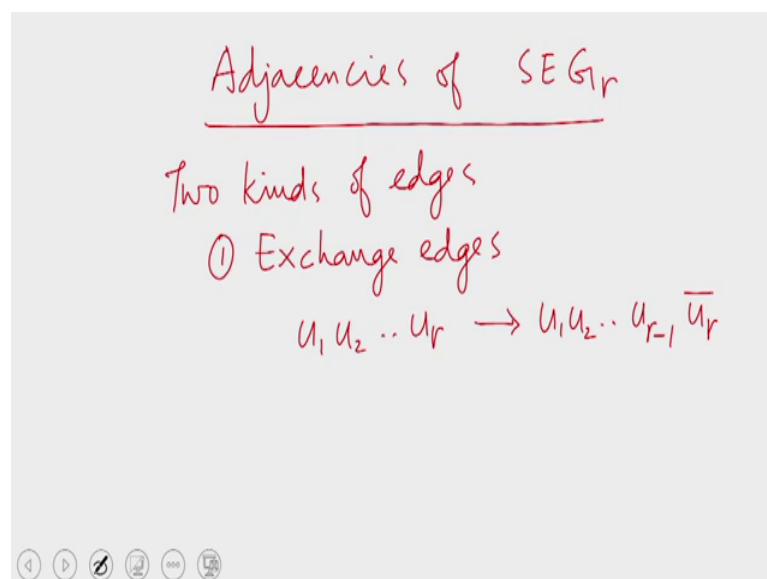 Adjacencies of SEGr
Two kinds of edges
① Exchange edges
u₁ u₂ .. uᵣ → u₁ u₂ .. uᵣ₋₁ u̅ᵣ